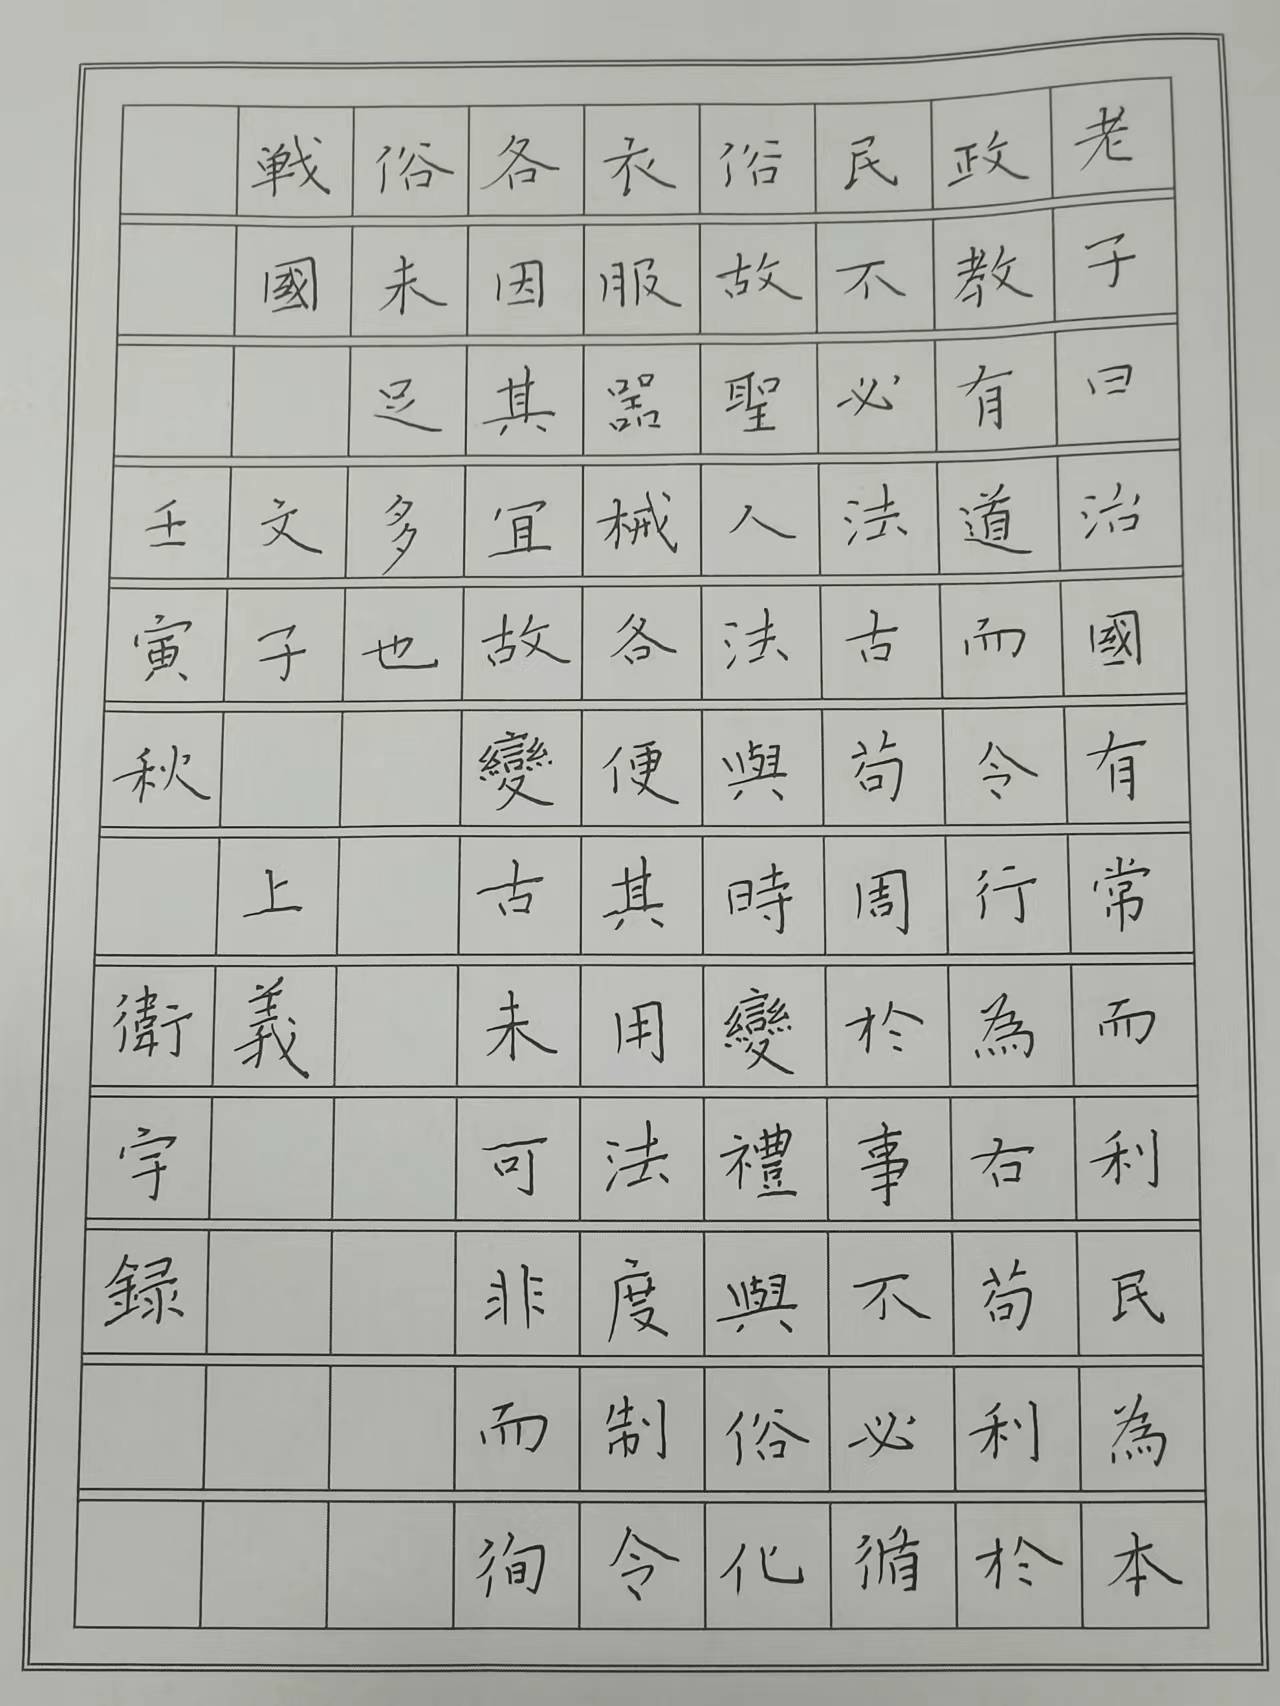 老子曰治國有常而利民為本
政教有道而令行為右苟利於
民不必法古苟周於事不必循
俗故聖人法與時變禮與俗化
衣服器械各便其用法度制令
各因其宜故變古未可非而徇
俗未足多也
戦國文子上義
壬寅秋衛宇録